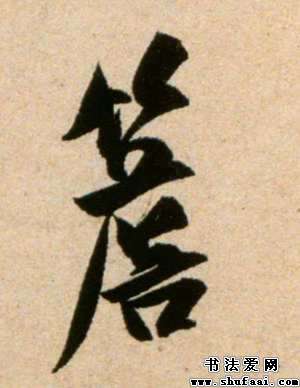 簷
书法爱网
www.shufaai.com